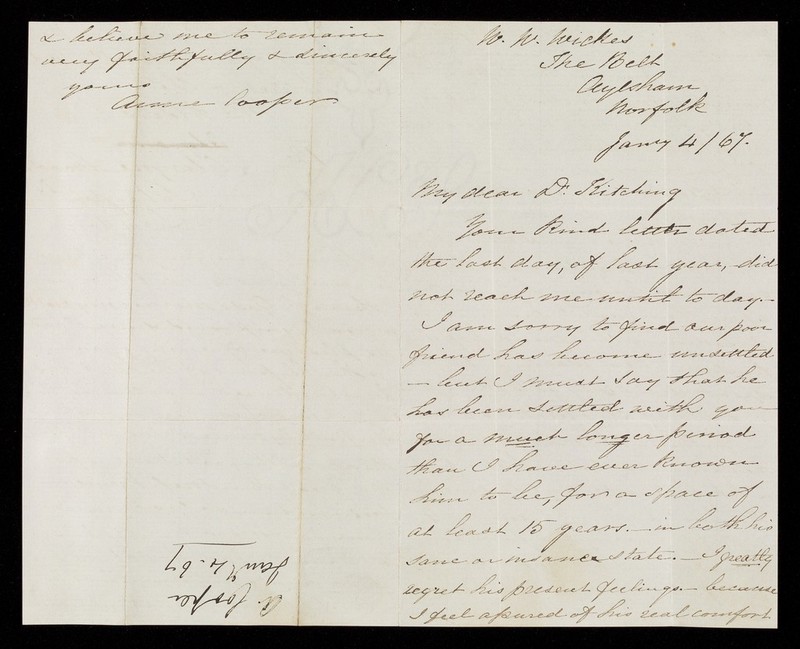 & believe me to remain
very faithfully & sincerely
yours
Anne Cooper
A. Cooper
Jany 4. 67
W. W. Wickes
The Belt
Aylsham
Norfolk
Jany 4/67.
My dear Dr. Kitching
Your kind letter dated
the last day, of last year, did
not reach me until to day. –
I am sorry to find our poor
friend has become unsettled
– but I must say that he
has been settled with you
for a much longer period
than I have ever known
him to be, for a space of
at least 15 years. – in both his
sane or insane state. – I greatly
regret his present feelings. – because
I feel assured of his real comfort